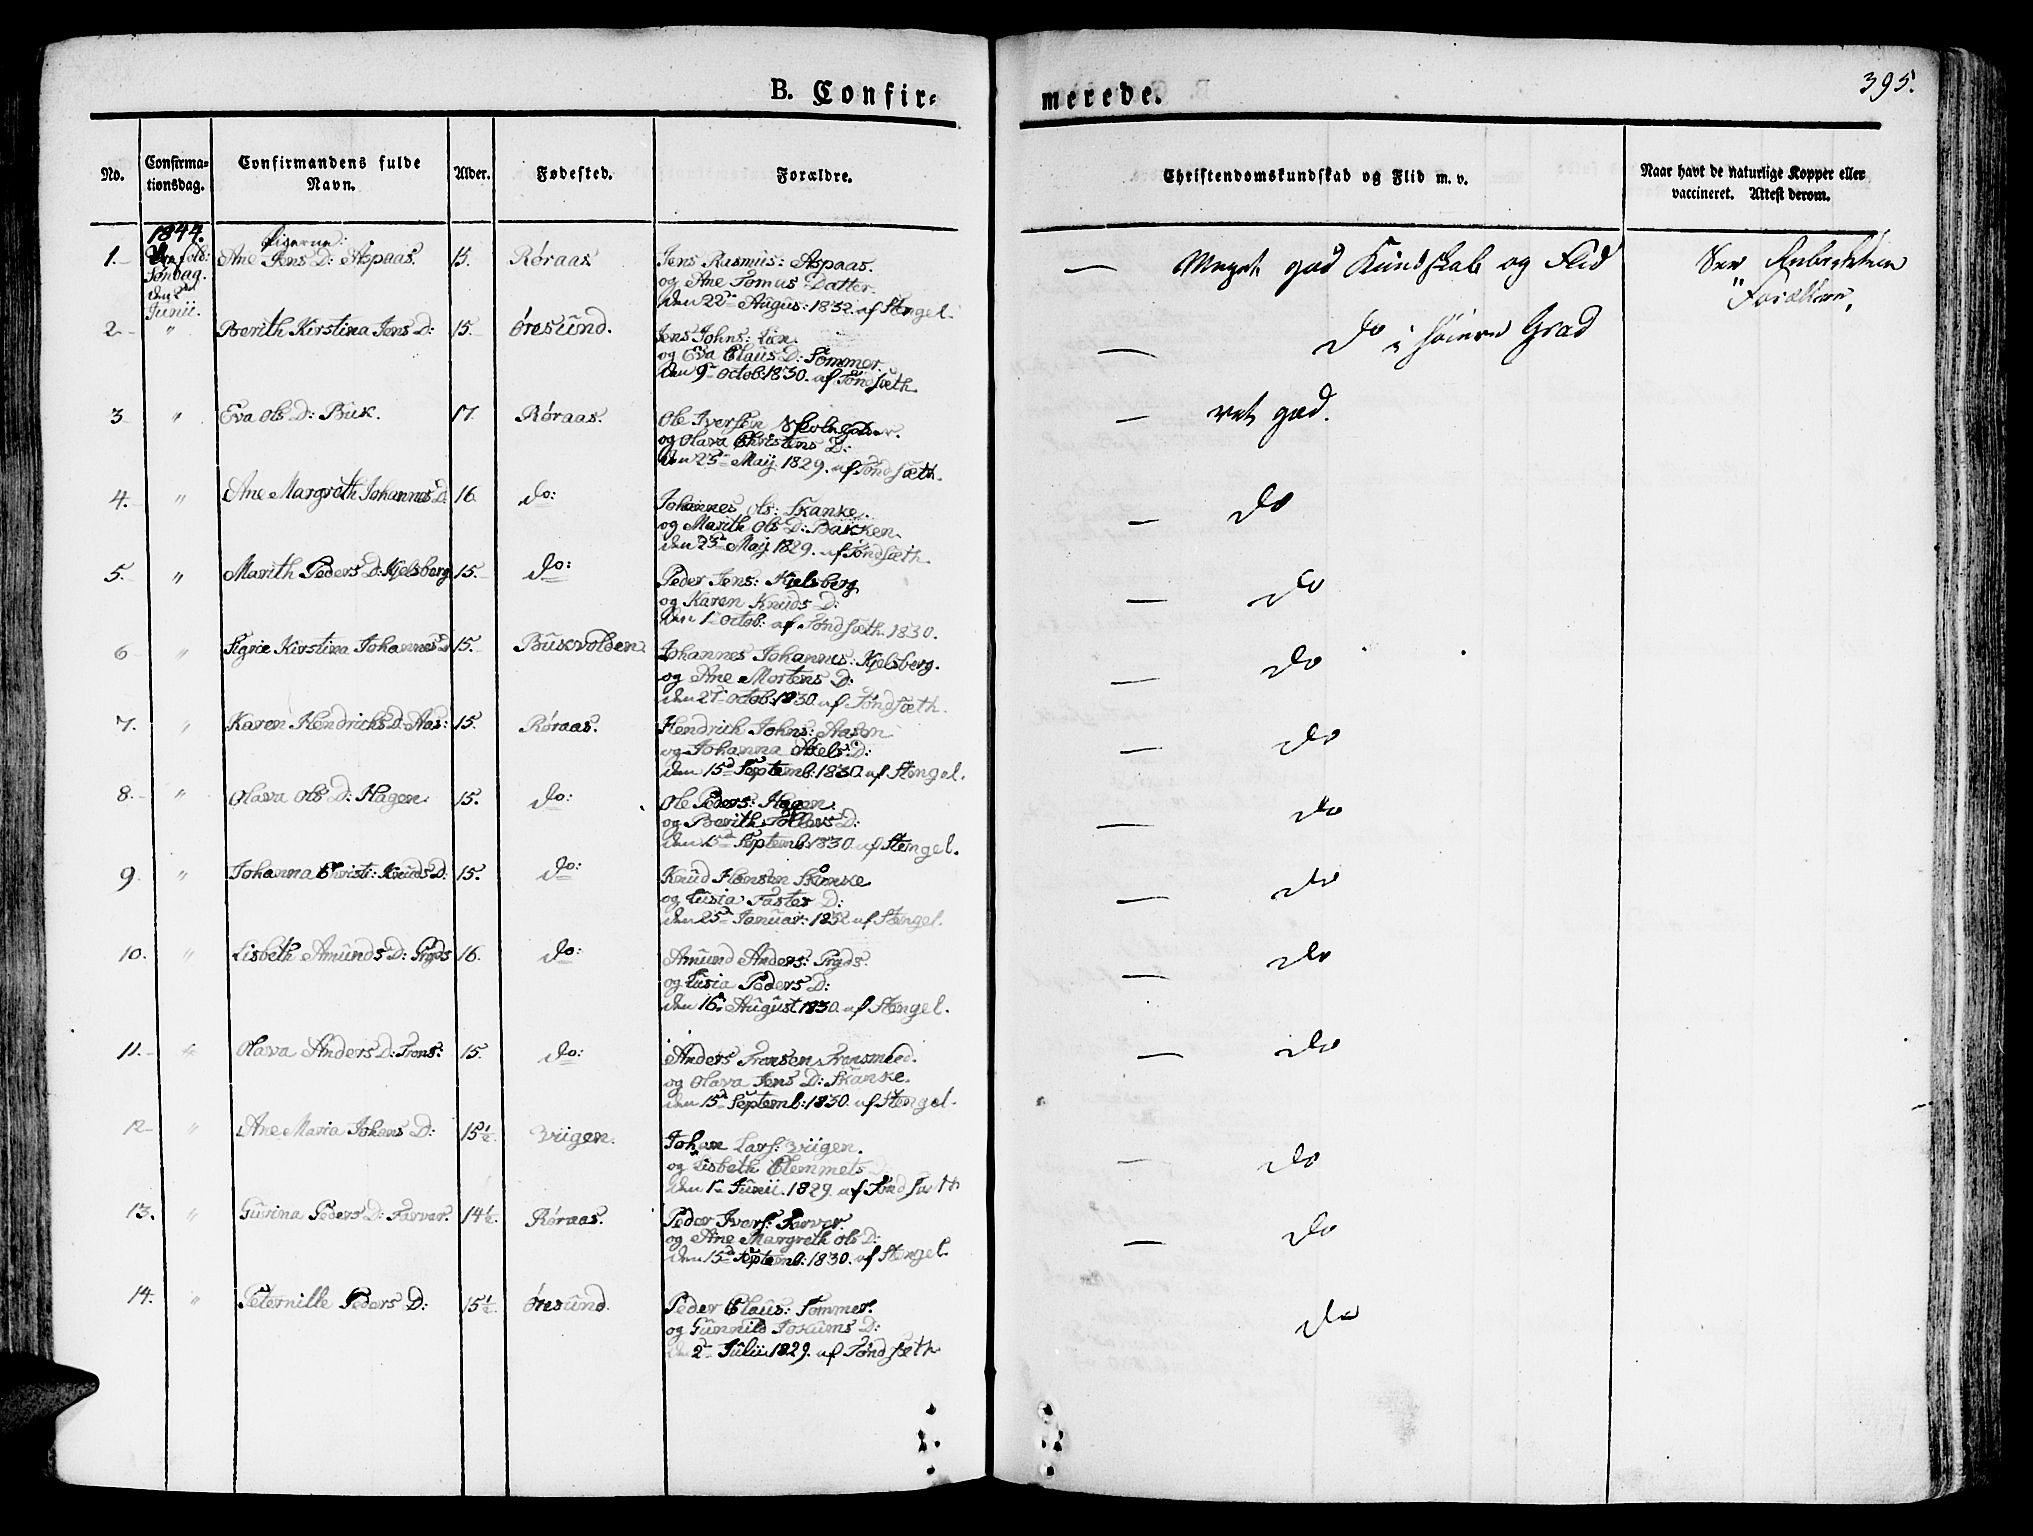 B. Confir=
merede.
395.
No.
Confirma-
tionsdag.
Confirmandens fulde
Navn.
Alder.
Fødested.
Forældre.
Christendomskundskab og Flid m. v.
Naar havt de naturlige Kopper eller
vaccineret. Attest derom.
1844.
Søndag.
den 2
Junii.
Pigerne:
1. Ane Jens D: Aspaas. 15. Røraas. Jens Rasmus: Aspaas.
og Ane Tomas Datter.
den 22 Augus: 1832. af Stengel.
— Meget god Kundskab og Flid
2 " Berith Kirstina Jens D: 15. Øresund. Jens Johns: Lien
og Eva Claus D: Sommer.
den 9 octob: 1830. af Tøndsæth.
— do i høiere Grad
3 " Eva Ols D: Buk. 17. Røraas. Ole Iversen
og Olava Christens D:
den 23 Maij 1829. af Tøndsæth.
— ret god.
4. " Ane Margreth Johannes D. 16. do: Johannes Ols: Skanke.
og Marith Ols D: Bakken.
den 23 Maij 1829. af Tøndsæth.
— do
5. " Marith Peders D: Kjelsberg 15. do: Peder Jens: Kjelsberg
og Karen Knuds D:
den 1 octob: af Tøndsæth. 1830.
— do
6 " Sigrie Kirstina Johannes D 15. Bukvolden. Johannes Johannes: Kjelsberg.
og Ane Mortens D:
den 27 octob: 1830. af Tøndsæth.
— do
7. " Karen Hendrichs D: Aas: 15. Røraas. Hendrich Johns: Aasen
og Johanna Axels D:
den 15 Septemb: 1830. af Stengel.
— do
8. " Olava Ols D: Hagen. 15. do: Ole Peders: Hagen
og Berith D:
den 15 Septemb: 1830. af Stengel.
— do
9 " Johanna Christi: Knuds D: 15. do: Knud Hansen Skanke
og Lusia D:
den 25 Januar: 1832 af Stengel.
— do
10. " Lisbeth Amunds D: Prÿds 16. do: Amund Anders: Prÿds.
og Lusia Peders D:
den 16 August 1830. af Stengel.
— do
11. " Olava Anders D: Trons: 15. do: Anders Tronsen
og Olava Jens D: Skanke.
den 15 Septemb: 1830. af Stengel.
— do
12 " Ane Maria Johans D: 15½. Viigen. Johan Lars: Viigen.
og Lisbeth Clemmets D:
den 1 Junii. 1829. af Tøndsæth
— do
13. " Gurina Peders D: Farver. 14½. Røraas. Peder Ivers: Farver.
og Ane Margreth Ols D:
den 15 Septemb: 1830. af Stengel.
— do
14. " Peternille Peders D: 15½. Øresund. Peder Claus: Sommer.
og Gunnild Jokums D:
den 2 Julii 1829. af Tøndsæth
do